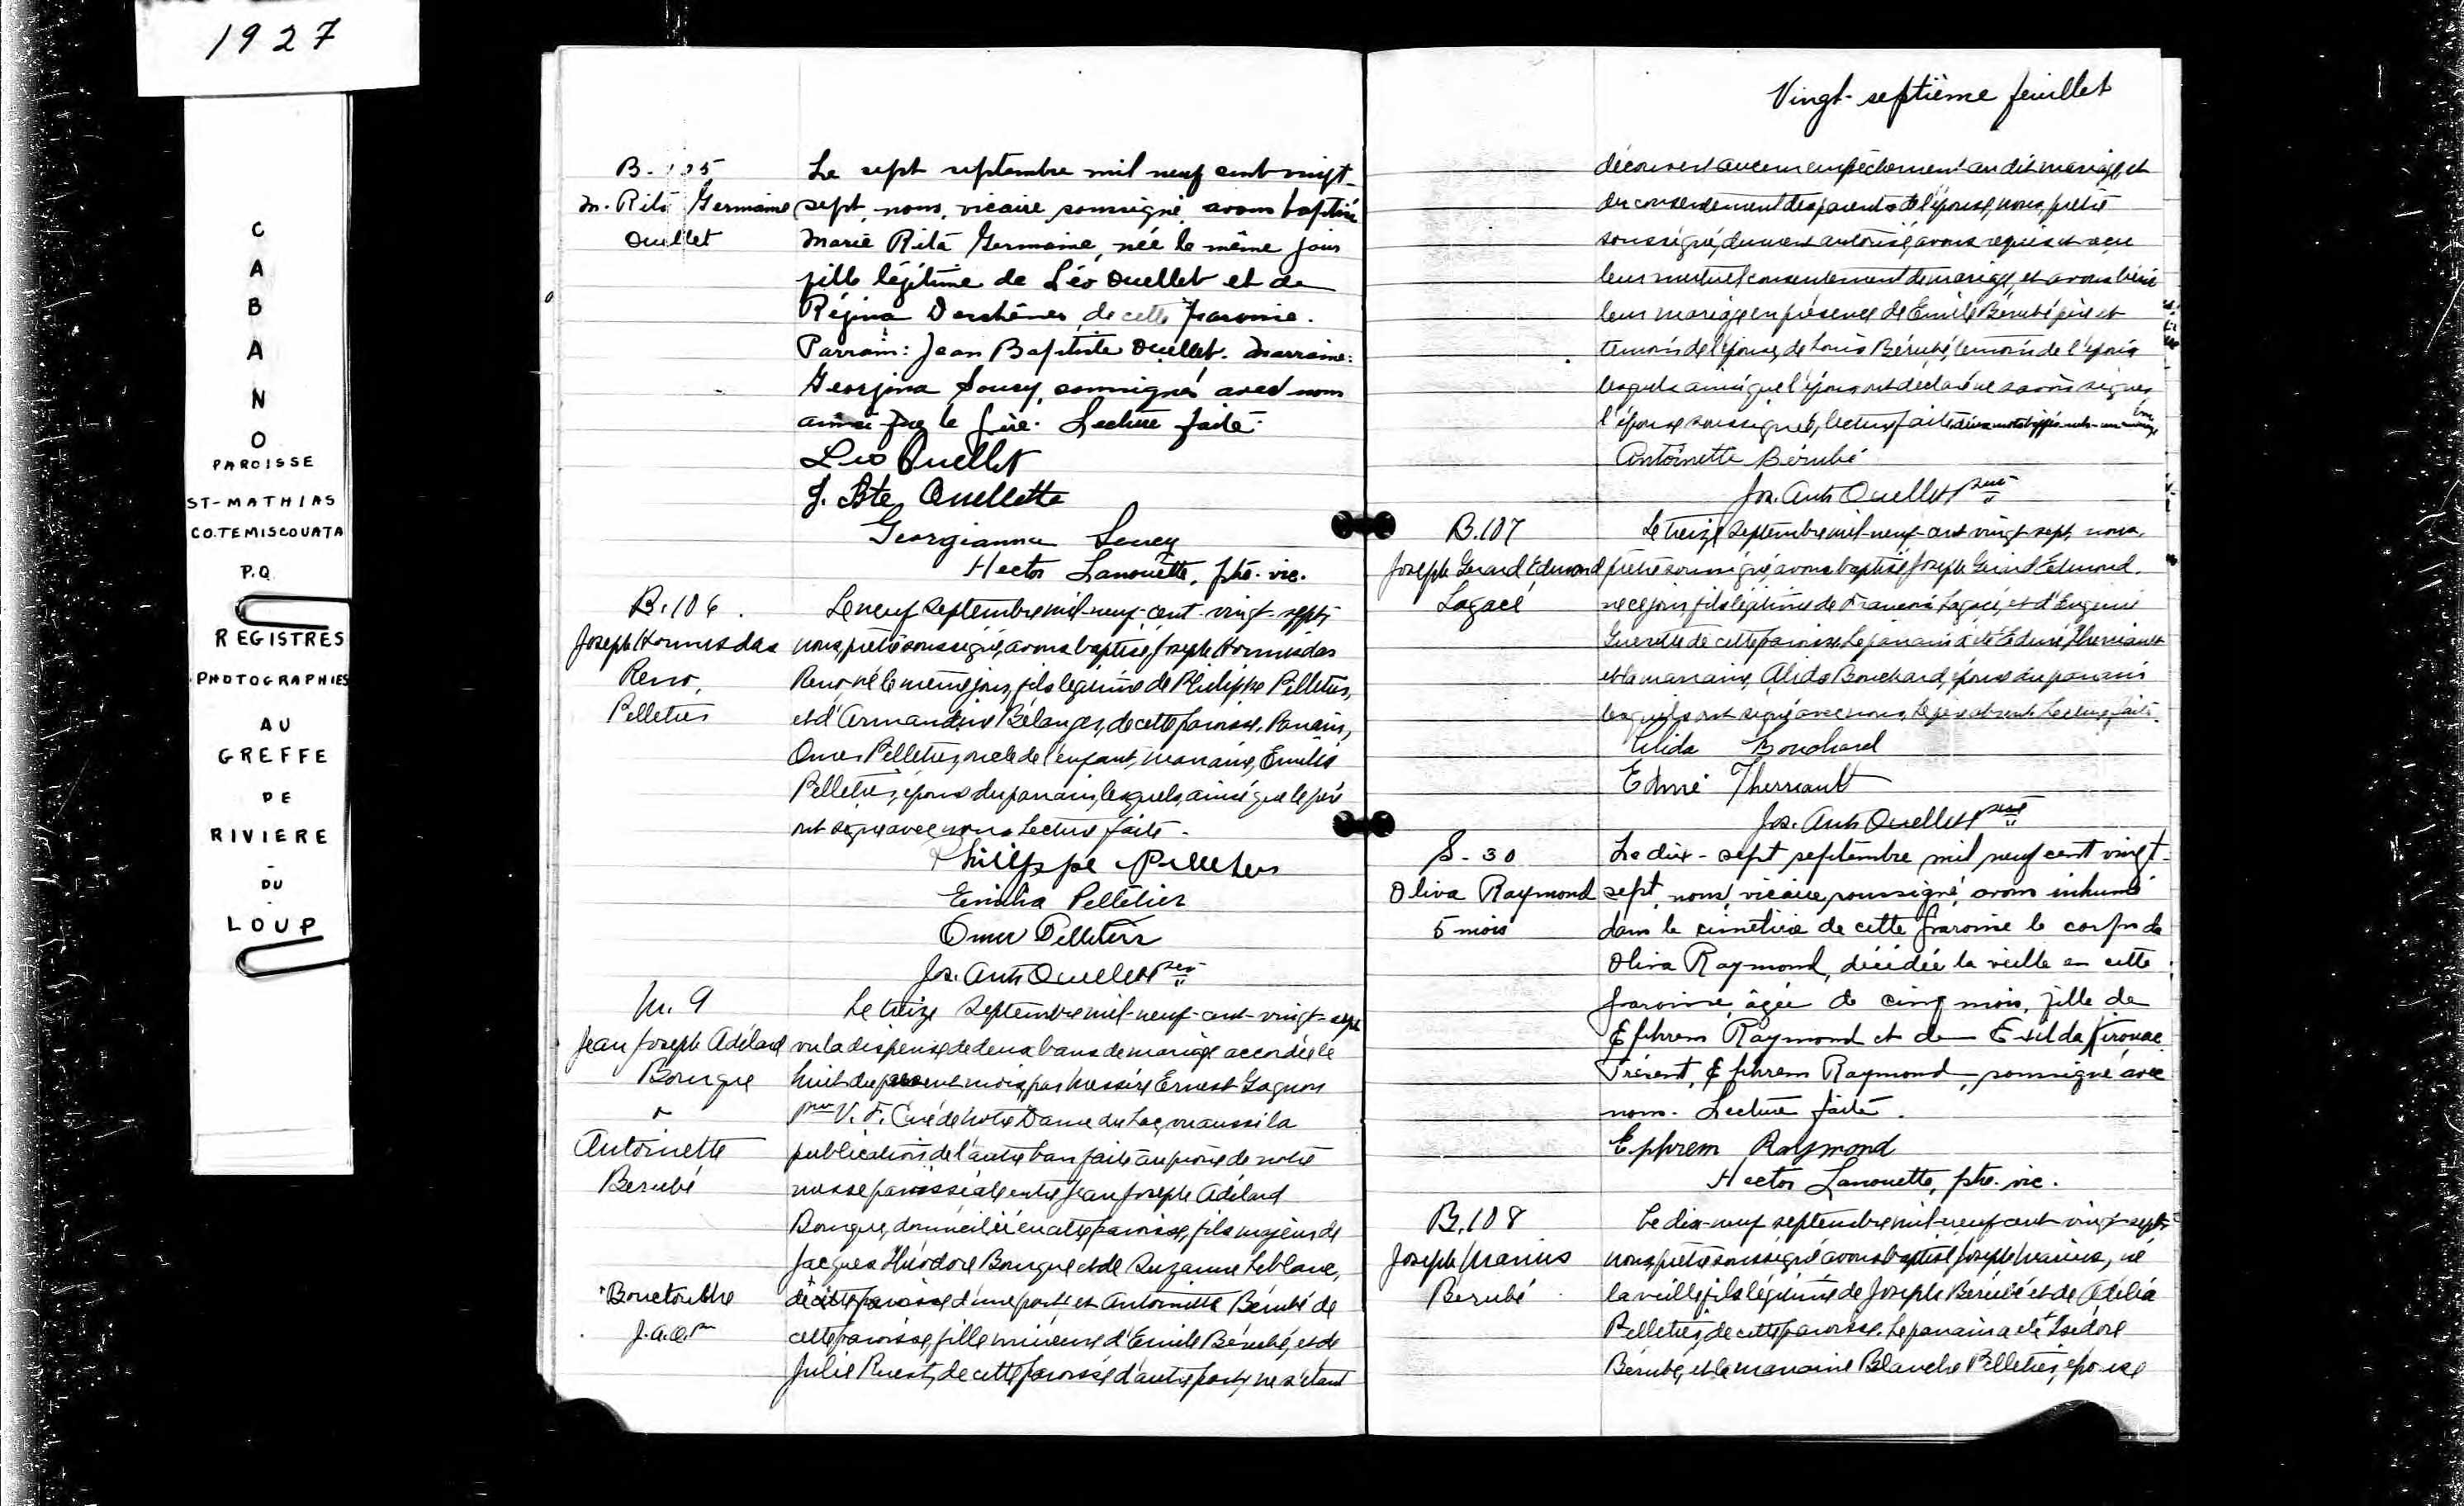 1927
C
A
B
A
N
O
PAROISSE
ST-MATHIAS
CO.TEMISCOUATA
P.Q.
REGISTRES
PHOTOGRAPHIES
AU
GREFFE
DE
RIVIERE
-
DU
-
LOUP
B. 105
M. Rita Germaine
Ouellet
Le sept septembre mil neuf cent vingt-
sept, nous, vicaire soussigné, avons baptisé
Marie Rita Germaine, née le même jour
fille légitime de Léo Ouellet et de
Régina Deschênes, de cette paroisse.
Parrain: Jean Baptiste Ouellet. Marraine:
Georgina Soucy, soussignés avec nous
ainsi que le père. Lecture faite.
Leo Ouellet
J. Bte Ouellette
Georgianna Soucy
Hector Lanouette, ptre. vic.
B. 106.
Joseph Hormisdas
Reno,
Pelletier
Le neuf septembre mil-neuf-cent-vingt-sept,
nous, prêtre soussigné, avons baptisé Joseph Hormisdas
Reno né le même jour, fils légitime de Philippe Pelletier,
et d'Armandine Bélanger, de cette paroisse. Parrain,
Omer Pelletier, oncle de l'enfant, marraine, Emilia
Pelletier, épouse du parrain, lesquels, ainsi que le père
ont signé avec nous. Lecture faite.
Philippe Pelletier
Emilia Pelletier
Omer Pelletier
Jos. Ant. Ouellet ptre
M. 9
Jean Joseph Adélard
Bourque
&
Antoinette
Berubé
Le treize septembre mil-neuf-cent-vingt-sept
vu la dispense de deux bans de mariage accordée le
huit du présent mois, par Messire Ernest Gagnon
ptre V. F. Curé de Notre Dame du Lac, vu aussi la
publication de l'autre ban faite au prône de notre
messe paroissiale entre Jean Joseph Adélard
Bourque, domicilié en cette paroisse, fils majeur de
Jacques Théodore Bourque et de Suzanne Leblanc,
de cette paroisse d'une part, et Antoinette Bérubé de
cette paroisse, fille mineure d'Emile Bérubé, et de
Julie Ruest, de cette paroisse d'autre part, ne s'étant
Bouctouche
J.A.O. ptre
Vingt-septième feuillet
découvert aucun empêchement au dit mariage, et
du consentement des parents de l'épouse, nous, prêtre
soussigné, dument autorisé, avons requis et reçu
leur mutuel consentement de mariage, et avons béni
leur mariage en présence de Emile Bérubé père et
témoin de l'épouse, de Louis Bérubé, témoin de l'époux
lesquels ainsi que l'époux ont déclaré ne savoir signer
l'épouse soussignée, lecture faite
Antoinette Bérubé
Jos. Ant. Ouellet ptre
B. 107
Joseph Gerard Edmond
Lagacé
Le treize septembre mil-neuf-cent vingt-sept, nous,
prêtre soussigné, avons baptisé Joseph Gérard Edmond,
né ce jour, fils légitime de François Lagacé, et d'Eugenie
Guerette de cette paroisse. Le parrain a été Edmé Therriault
et la marraine, Alida Bouchard, épouse du parrain
lesquels ont signé avec nous, le père absent. Lecture faite.
Alida Bouchard
Edmé Therriault
Jos. Ant. Ouellet ptre
S - 30
Oliva Raymond
5 mois
Le dix-sept septembre mil neuf cent vingt-
sept, nous, vicaire, soussigné, avons inhumé
dans le cimetière de cette paroisse le corps de
Oliva Raymond, décédée la veille en cette
paroisse, âgée de cinq mois, fille de
Ephrem Raymond et de Exilda Kirouac.
Présent, Ephrem Raymond, soussigné avec
nous. Lecture faite.
Ephrem Raymond
Hector Lanouette, ptre. vic.
B. 108
Joseph Marius
Berubé
Le dix-neuf septembre mil-neuf-cent-vingt-sept
nous, prêtre soussigné avons baptisé Joseph Marius, né
la veille, fils légitime de Joseph Bérubé et de Adélia
Pelletier, de cette paroisse. Le parrain a été Isidore
Bérubé, et la marraine Blanche Pelletier, épouse